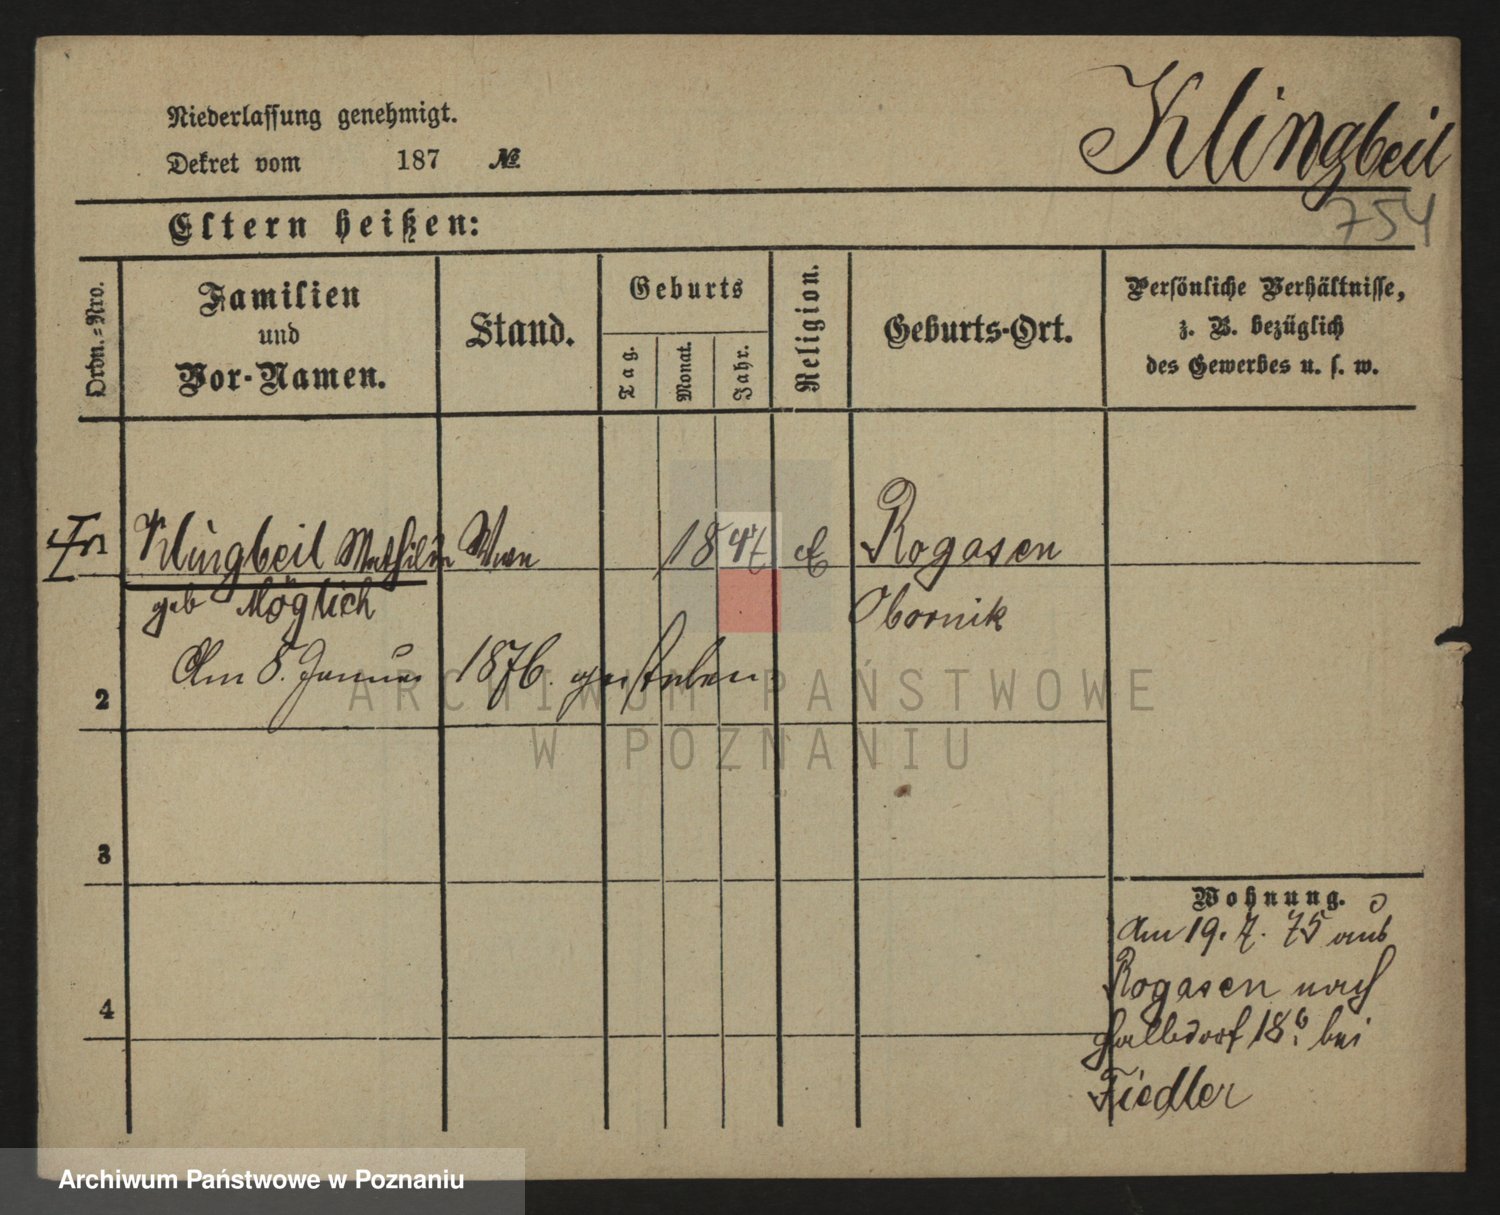 Klingbeil
754
Niederlassung genehmigt.
Dekret vom 187 №
Eltern heißen:
Ordn.-Nro.
Familien
und
Vor-Namen.
Stand.
Geburts
Tag.
Monat.
Jahr.
Religion.
Geburts-Ort.
Persönliche Verhältnisse,
z. B. bezüglich
des Gewerbes u. s. w.
Klingbeil Mathilde 1847 Rogasen
geb Möglich Obornik
Am 8. Januar 1876. gestorben
2
3
4
Wohnung.
Am 19. 7. 75 aus
Rogasen nach
18 bei
Fiedler
ARCHIWUM PAŃSTWOWE
W POZNANIU
Archiwum Państwowe w Poznaniu